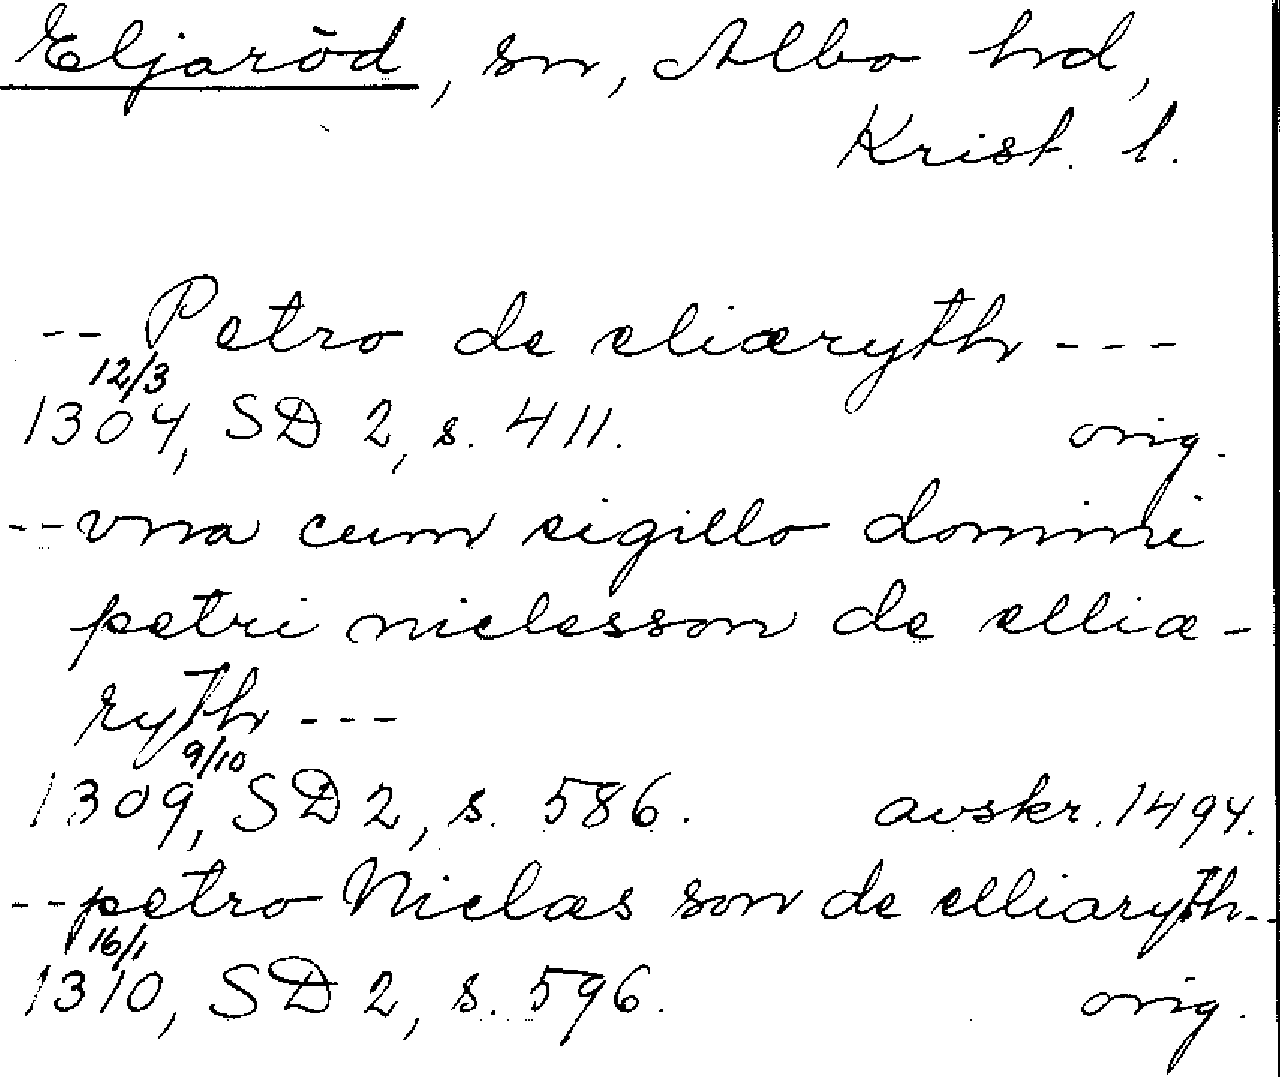 Eljaröd, sn, Albo hd,
Krist. l.
-- Petro de eliæryth ---
12/3
1304, SD 2, s. 411. orig.
-- vna cum sigillo domini
petri niclesson de elliæ-
ryth ---
9/10
1309, SD 2, s. 586. avskr. 1494.
-- petro Niclæs son de elliaryth--
16/1
1310, SD 2, s. 596. orig.